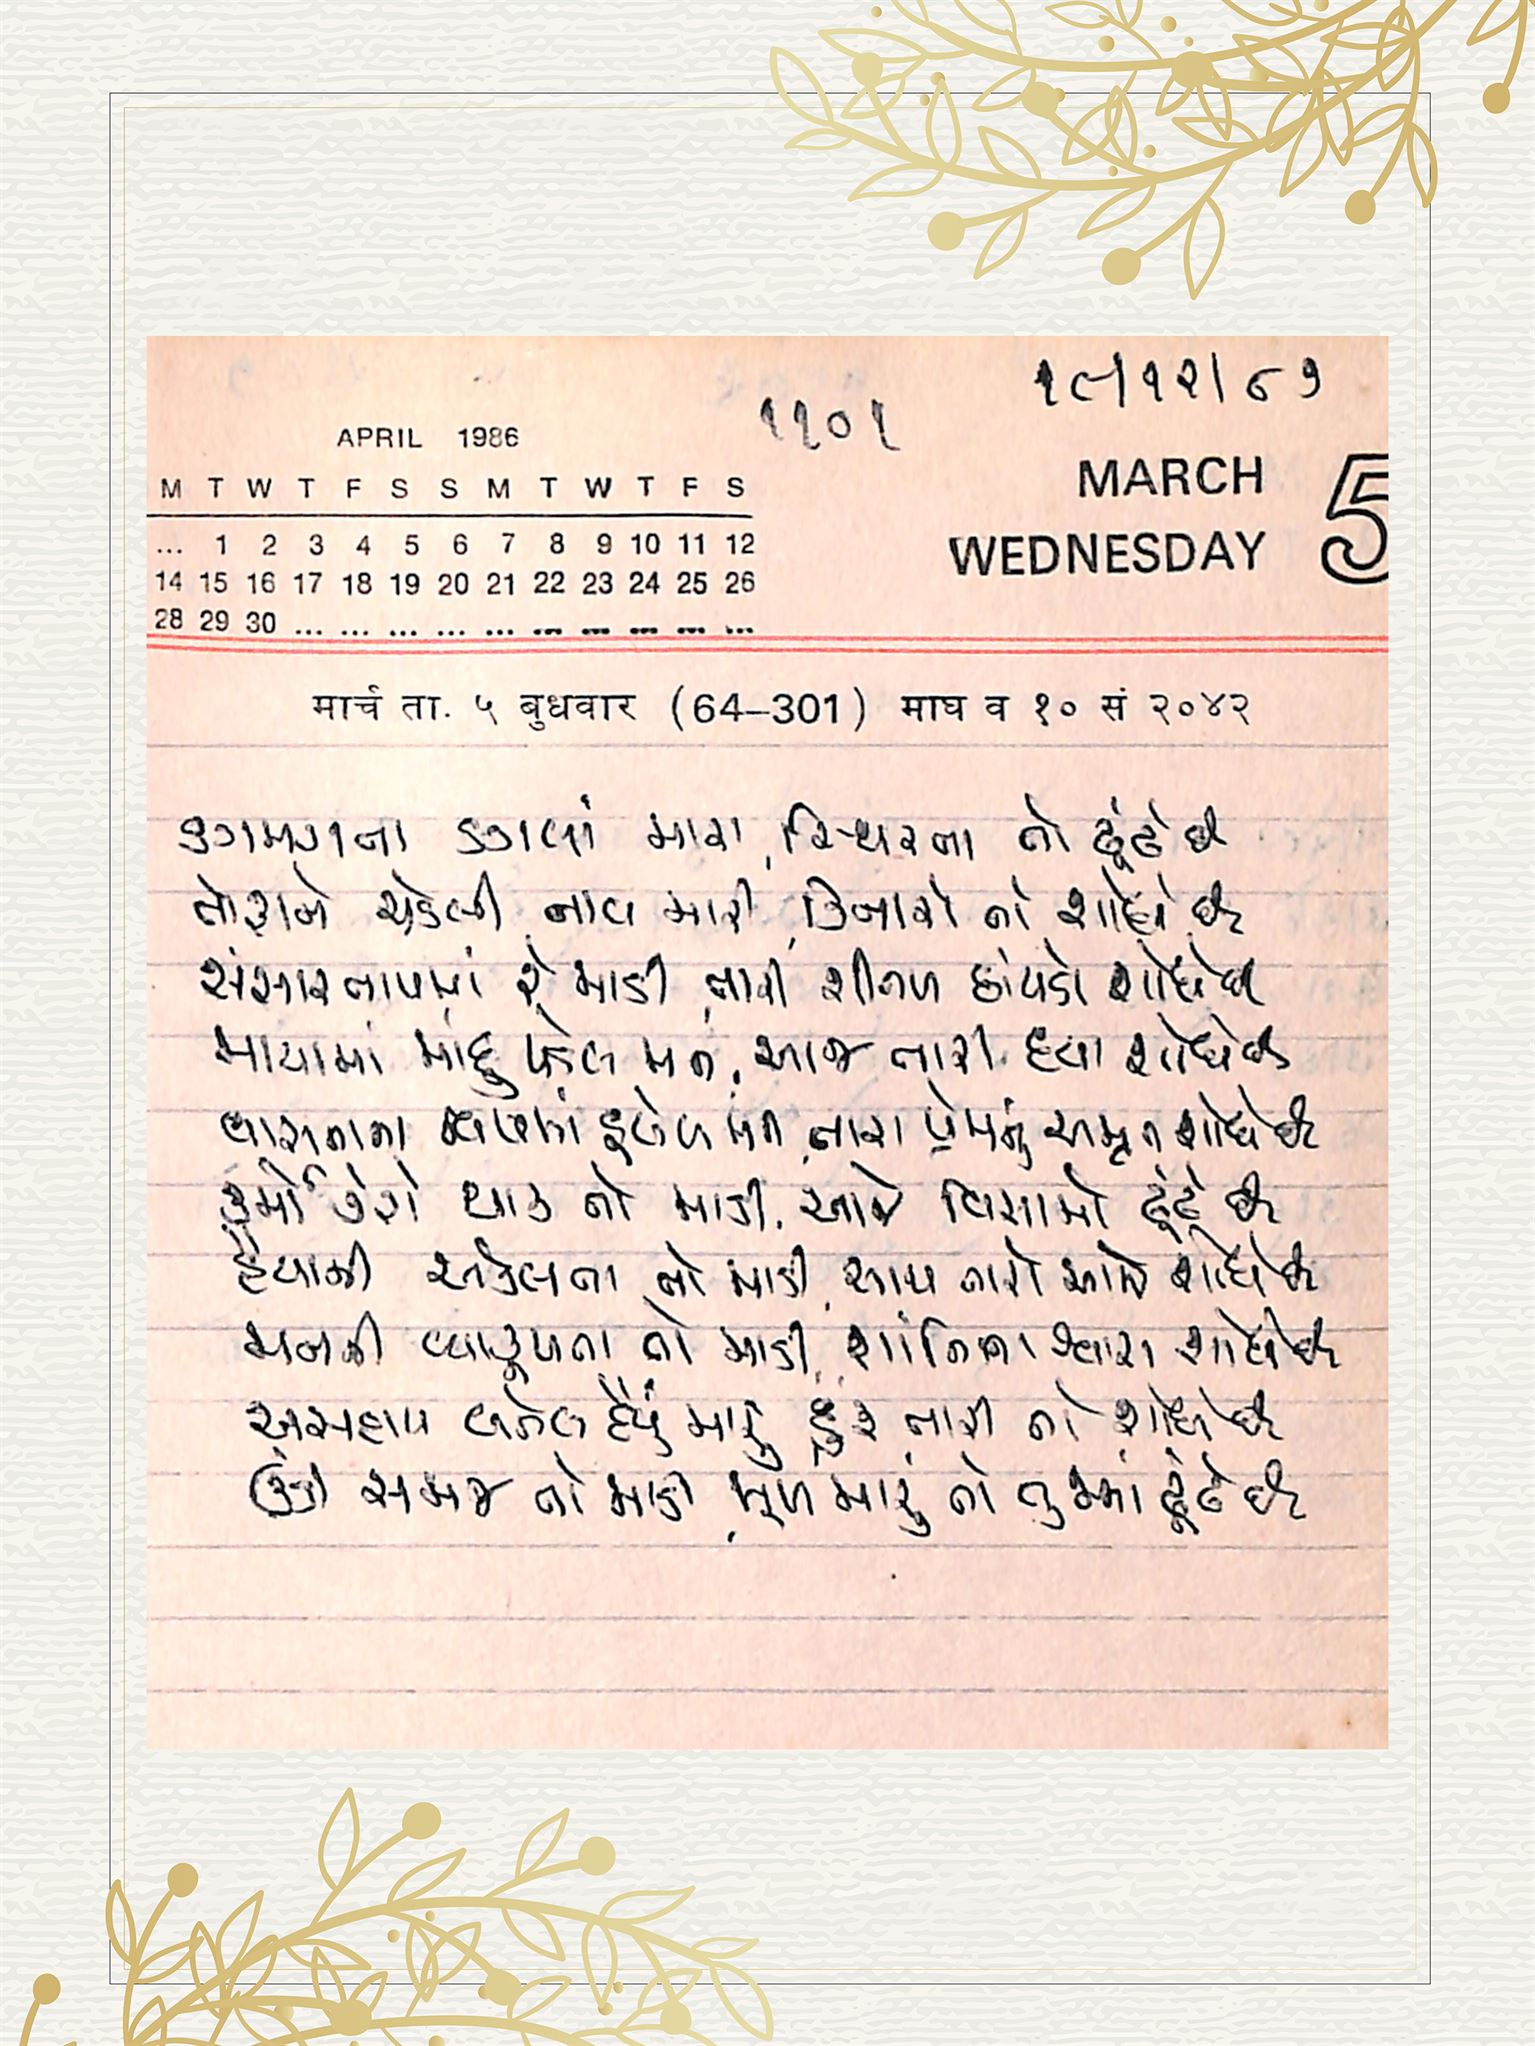 ૧૯/૧૨/૮૭
૧૧૦૧
APRIL 1986
MARCH 5
WEDNESDAY
M T W T F S S M T W T F S
... 1 2 3 4 5 6 7 8 9 10 11 12
14 15 16 17 18 19 20 21 22 23 24 25 26
28 29 30 ... ... ... ... ... ... ... ... ... ...
मार्च ता. ५ बुधवार (64–301) माघ व १० सं २०४२
ડગમગતા ડગલાં મારા, સ્થિરતા તો ઢૂંઢે છે
તોફાને ચડેલી નાવ મારી, કિનારો તો શોધે છે
સંસારતાપમાં રે માડી, તારી શીતળ છાંયડો શોધે છે
માયામાં પડેલ મન, આજ તારી દયા શોધે છે
વાસનાના ડૂબેલ મન, તારા પ્રેમનું અમૃત શોધે છે
તો માડી, આજે વિસામો ઢૂંઢે છે
હૈયાની એકલતા તો માડી, સાથ તારો આજે શોધે છે
મનની વ્યાકુળતા તો માડી, શાંતિના શોધે છે
અસહાય બનેલ હૈયું મારું, હૂંફ તારી તો શોધે છે
ઊંડી સમજ તો માડી, મૂળ મારું તો તુજમાં ઢૂંઢે છે